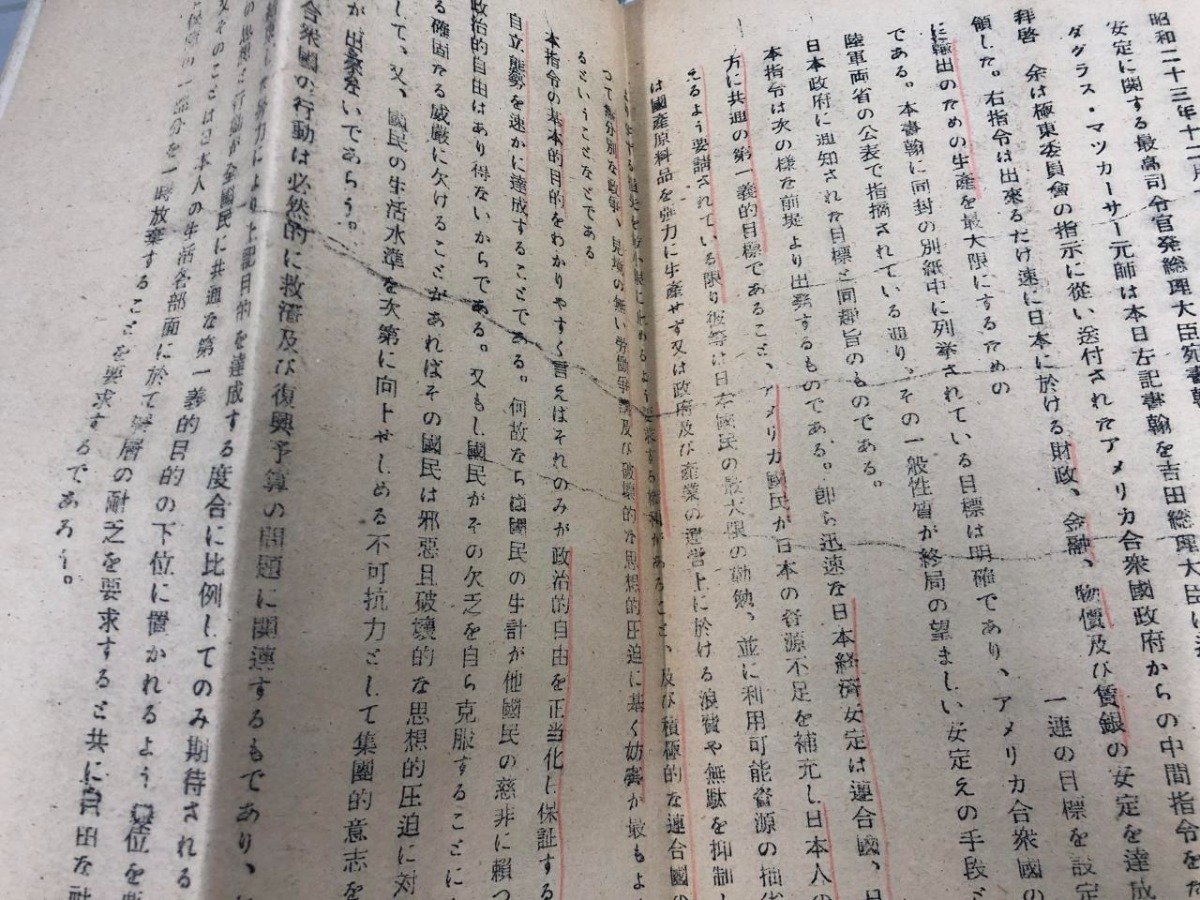 昭和二十三年十二月
安定に関する最高司令官発総理大臣宛書翰
ダグラス・マツカーサー元帥は本日左記書翰を吉田総理大臣に
拝啓　余は極東委員會の指示に從い送付されたアメリカ合衆國政府からの中間指令を
領した。右指令は出來るだけ速に日本に於ける財政、金融、物價及び賃銀の安定を達成
に輸出のための生產を最大限にするための　一連の目標を設定
である。本書翰に同封の別紙中に列挙されている目標は明確であり、アメリカ合衆國の
陸軍両省の公表で指摘されている通り、その一般性質が終局の望ましい安定えの手段
日本政府に通知された目標と同趣旨のものである。
本指令は次の様な前提より出発するものである。即ち迅速な日本経済安定は連合國、日
方に共通の第一義的目標であること、アメリカ國民が日本の資源不足を補充し日本人の
えるよう要請されている限り彼等は日本國民の最大限の勤勉、並に利用可能資源の
は國產原料品を強力に生產せず又は政府及び產業の運営上に於ける浪費や無駄を抑制し
があること、及び積極的な連合國
つて無分別な政爭、見境の無い労働爭議及び破壊的な思想的圧迫に基く妨害が最もよ
るということなどである
本指令の基本的目的をわかりやすく言えばそれのみが政治的自由を正当化し保証する
自立態勢を速かに達成することである。何故ならば國民の生計が他國民の慈悲に賴つ
政治的自由はあり得ないからである。又もし國民がその欠乏を自ら克服することに
る確固たる威厳に欠けることがあればその國民は邪惡且破壊的な思想的圧迫に対
して、又、國民の生活水準を次第に向上せしめる不可抗力として集團的意志を
が出來ないであらう。
合衆國の行動は必然的に救済及び復興予算の問題に関連するものであり、
努力により上記目的を達成する度合に比例してのみ期待される
の思想と行動が全國民に共通な第一義的目的の下位に置かれるよう
又そのことは日本人の生活各部面に於て一層の耐乏を要求すると共に自由な
一部分を一時放棄することを要求するであろう。